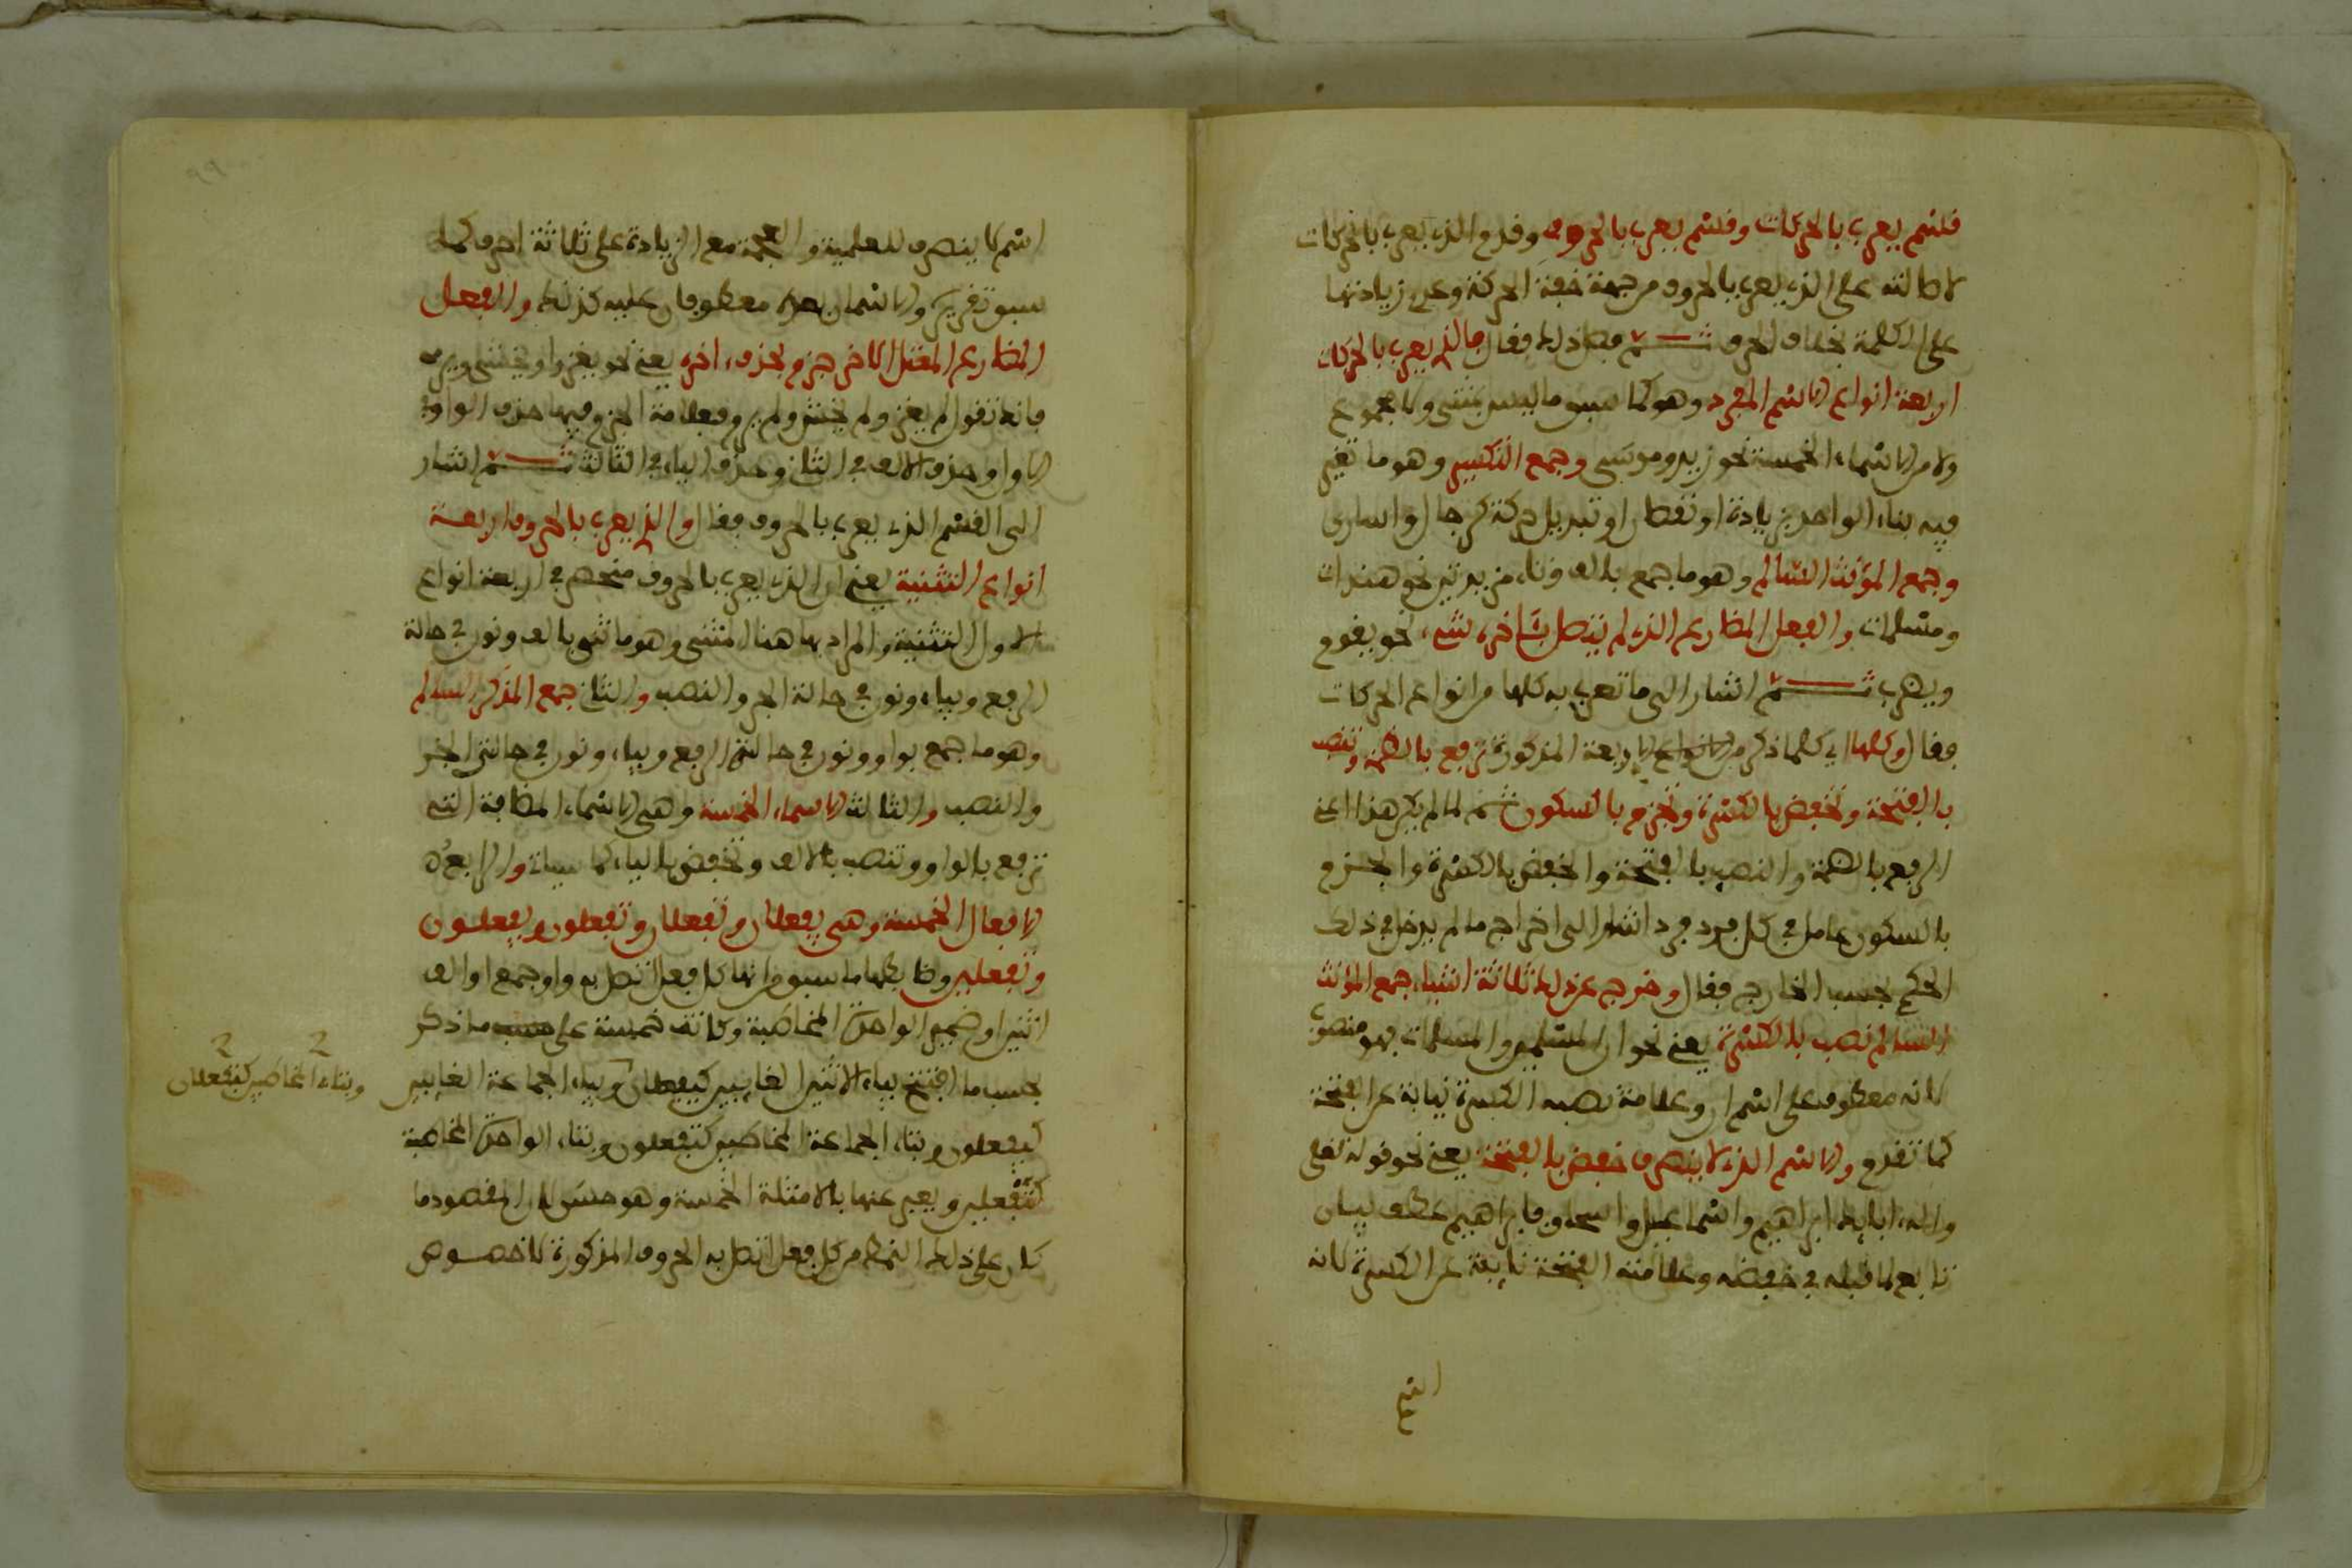 قسم يعرب بالحركات وقسم يعرب بالحروف وقدم الذي يعرب بالحركات
لاصالته على الذي يعرب بالحروف من جهة خفة الحركة وعدم زيادتها
على الكلمة بخلاف الحرف ثم فصل ذلك فقال فالذي يعرب بالحركات
اربعة انواع الاسم المفرد وهو كما سبق ما ليس مثنى ولا مجموع
ولا من الاسماء الخمسة نحو زيد وموسى وجمع التكسير وهو ما تغير
فيه بناء الواحد بزيادة او نقص او تبديل حركة كرجال واسارى
وجمع المؤنث السالم وهو ما جمع بالف وتاء مزيدتين نحو هندات
ومسلمات والفعل المضارع الذي لم يتصل بآخره شيء نحو يقوم
ويضرب ثم اشار الى ما تعرب به كلها من انواع الحركات
فقال وكلها اي كلما ذكر من الانواع الاربعة المذكورة ترفع بالضمة وتنصب
بالفتحة وتخفض بالكسرة وتجزم بالسكون ثم لما لم يكن هذا اعني
الرفع بالضمة والنصب بالفتحة والخفض بالكسرة والجزم
بالسكون عاملا في كل فرد فرد اشار الى اخراج ما لم يدخل في ذلك
الحكم بحسب الخارج فقال وخرج عن ذلك ثلاثة اشياء جمع المؤنث
السالم نصب بالكسرة يعني نحو ان المسلمين والمسلمات فهو منصوب
لانه معطوف على اسم ان وعلامة نصبه الكسرة نيابة عن الفتحة
كما تقدم والاسم الذي لا ينصرف خفض بالفتحة يعني نحو قوله تعلى
واله ابايك ابراهيم واسماعيل واسحاق فابراهيم عطف بيان
تابع لما قبله في خفضه وعلامته الفتحة نايبة عن الكسرة لانه
اسم لا ينصرف للعلمية والعجمة مع الزيادة على ثلاثة احرف كما
سبق تقريره والاسمان بعده معطوفان عليه كذلك والفعل
المضارع المعتل الاخر جزم بحذف اخره يعني نحو يغزوا ويخشى ويرمي
فانك تقول لم يغز ولم يخش ولم يرم فعلامة الجزم فيها حذف الواو في
الاول وحذف الالف في الثاني وحذف الياء في الثالث ثم اشار
الى القسم الذي يعرب بالحروف فقال والذي يعرب بالحروف اربعة
انواع التثنية يعني ان الذي يعرب بالحروف منحصر في اربعة انواع
الاول التثنية والمراد بها هنا المثنى وهو ما ثني بالف ونون في حالة
الرفع وبياء ونون في حالة الجر والنصب والثاني جمع المذكر السالم
وهو ما جمع بواو ونون في حالتي الرفع وبياء ونون في حالتي الجر
والنصب والثالث الاسماء الخمسة وهي الاسماء المضافة التي
ترفع بالواو وتنصب بالالف وتخفض بالياء كما سياتي والرابع
الافعال الخمسة وهي يفعلان وتفعلان وتفعلون ويفعلون
وتفعلين وضابطها ما سبق من انها كل فعل اتصل به واو جمع او الف
اثنين او ضمير الواحدة المخاطبة وكانت خمسة على حسب ما ذكر
بحسب ما افتتح بياء الاثنين الغايبين كيفعلان وبياء الجماعة الغايبين
وبتاء المخاطبين كتفعلان
كيفعلون وبتاء الجماعة المخاطبين كتفعلون وبتاء الواحدة المخاطبة
كتفعلين ويعبر عنها بالامثلة الخمسة وهو حسن لان المقصود ما
كان على ذلك النمط من كل فعل اتصل به الحروف المذكورة لا خصوص